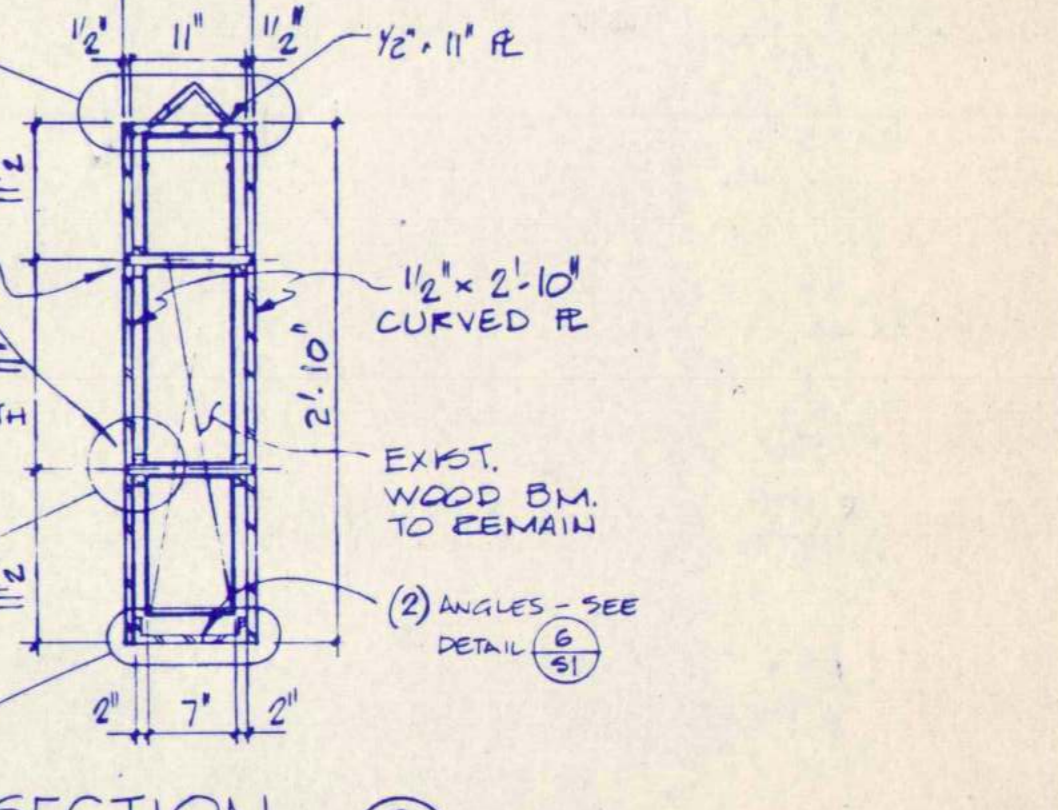 1/2" 11" 1/2"
1/2" x 11" PL
11 1/2
1/2" x 2'-10"
CURVED PL
2'-10"
EXIST.
WOOD BM.
TO REMAIN
11 1/2
(2) ANGLES - SEE
DETAIL 6
S1
2" 7" 2"
SECTION